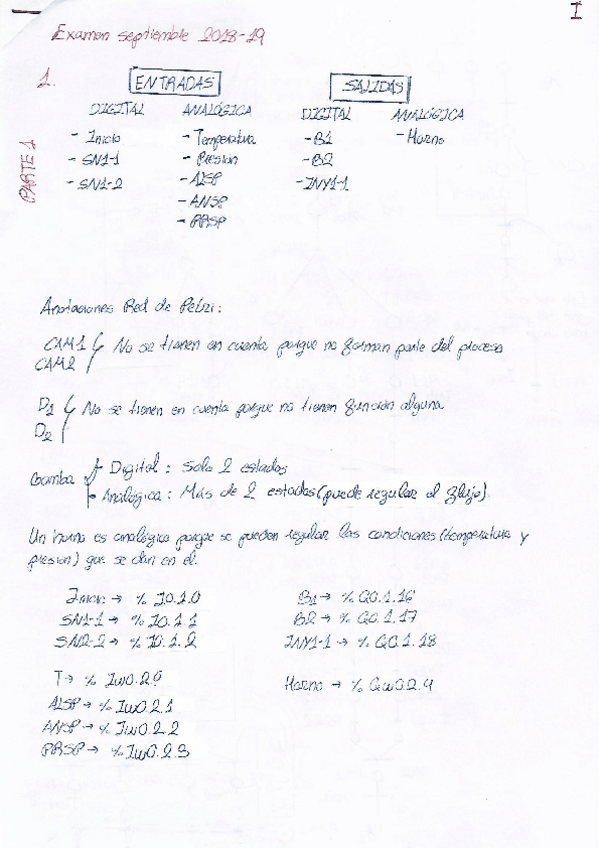 I
Examen septiembre 2018-19
1. ENTRADAS SALIDAS
DIGITAL ANALÓGICA DIGITAL ANALÓGICA
- Inicio - Temperatura - B1 - Horno
- SN1-1 - Presion - B2
- SN1-2 - AISP - INY1-1
- ANSP
- PRSP
PARTE 1
Anotaciones Red de Petri:
CAM1 No se tienen en cuenta porque no forman parte del proceso
CAM2
D1 No se tienen en cuenta porque no tienen función alguna
D2
Bomba Digital: Solo 2 estados
Analógica: Más de 2 estados (puede regular el flujo).
Un horno es analógico porque se pueden regular las condiciones (temperatura y
presion) que se dan en el.
Inicio → % I0.1.0 B1 → % Q0.1.16
SN1-1 → % I0.1.1 B2 → % Q0.1.17
SN2-2 → % I0.1.2 INY1-1 → % Q0.1.18
T → % Iw0.2.0 Horno → % Qw0.2.4
AISP → % Iw0.2.1
ANSP → % Iw0.2.2
PRSP → % Iw0.2.3